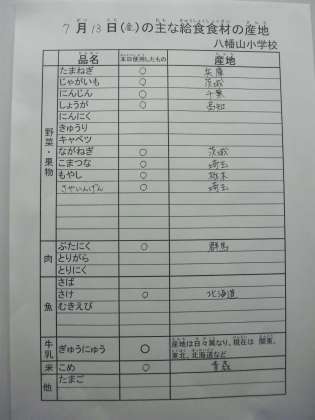 7月13日(金)の主な給食食材の産地
八幡山小学校
品名 本日使用したもの 産地
野菜・果物
たまねぎ ○ 兵庫
じゃがいも ○ 茨城
にんじん ○ 千葉
しょうが ○ 高知
にんにく
きゅうり
キャベツ
ながねぎ ○ 茨城
こまつな ○ 埼玉
もやし ○ 栃木
さやいんげん ○ 埼玉
肉
ぶたにく ○ 群馬
とりがら
とりにく
魚
さば
さけ ○ 北海道
むきえび
牛乳 ぎゅうにゅう ○ 産地は日々異なり、現在は 関東、
東北、北海道など
米 こめ ○ 青森
他 たまご